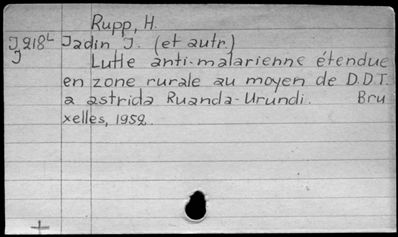 Rupp, H.
J218L Jadin J. (et autr.)
J
Lutte anti-malarienne étendue
en zone rurale au moyen de D.D.T.
a astrida Ruanda-Urundi. Bru
xelles, 1952.